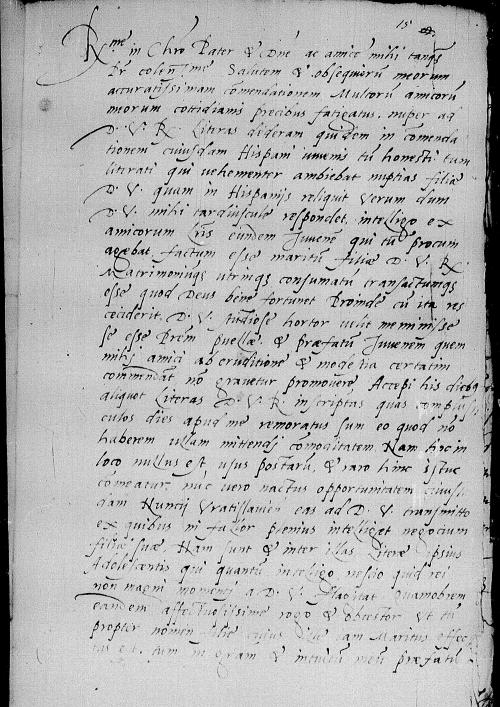 15
Rme in Chro Pater & Dne ac amice mihi tanq
Pr colen me Salutem & obsequiorū meorum
accuratissimam comendationem Multorū amicorū
meorum cottidianis precibus fatigatus, nuper ad
D. V. R. Literas dederam quidem in comenda
tionem cuiusdam Hispani iuvenis tū honesti tam
literati qui vehementer ambiebat nuptias filiæ
D. V. quam in Hispanijs reliquit Verum dum
D. V. mihi tardiuscule respondet, intelligo ex
amicorum Lris eundem Juvenē qui tū procum
agebat factum esse maritū filiæ D. V. R.
Matrimoniūq utrinq consumatū transactumq
esse quod Deus bene fortunet Proinde cū ita res
ceciderit D. V. studiose hortor velit meminisse
se esse Prem puellæ, & præfatū Juvenem quem
mihi amici ab eruditione & modestia certatim
commendāt nō gravetur promovere Accepi his diebq
aliquot Literas D. V. R. inscriptas quas complus
culos dies apud me remoratus sum eo quod nō
haberem ullam mittendi commoditatem. Nam hic in
loco nullus est usus postarū, & raro hinc istuc
comeatur nūc vero nactus opportunitatem cuiusd
dam Nuncij Vratislaviēn eas ad D. V. transmitto
ex quibus ni fallor plenius intelliget negocium
filiæ suæ. Nam sunt & inter illas literæ ipsius
Adolescentis qui quantū intelligo nescio quid rei
non magni momenti a D. V. flagitat Quamobrem
eandem affectuosissime rogo & obtestor Ut tū
propter nomen filiæ cuius ille iam Maritus effec
tus est, tum in gram & intuitū meū præfatū